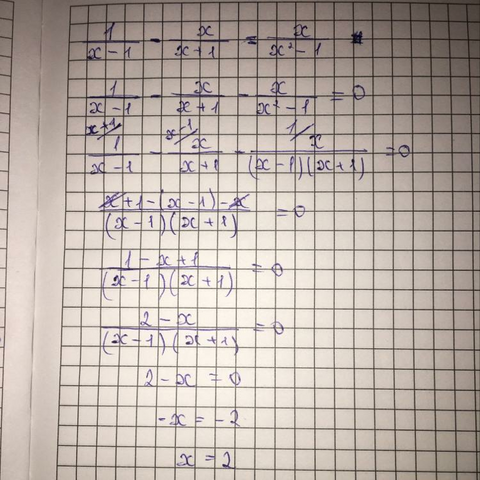 1/(x-1) - x/(x+1) = x/(x²-1)
1/(x-1) - x/(x+1) - x/(x²-1) = 0
x+1/ 1/(x-1) - x-1/ x/(x+1) - 1/ x/((x-1)(x+1)) = 0
(x+1-(x-1)-x)/((x-1)(x+1)) = 0
(1-x+1)/((x-1)(x+1)) = 0
(2-x)/((x-1)(x+1)) = 0
2-x = 0
-x = -2
x = 2